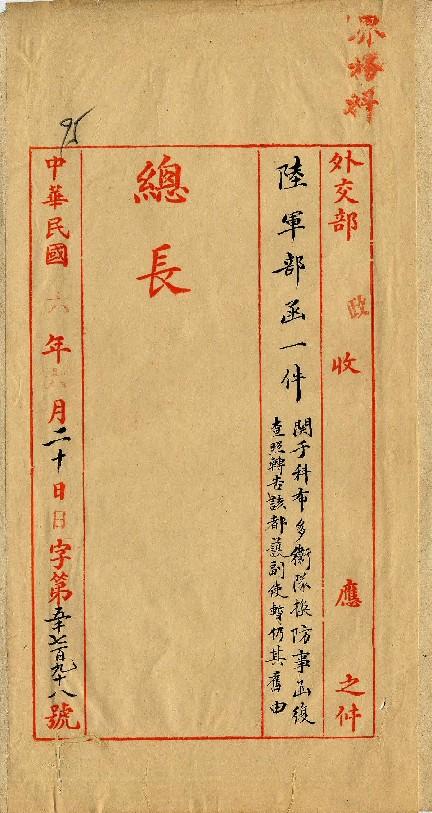 界務科
外交部 政 收 應 之件
陸軍部函一件
關于科布多衛隊換防事函復
查照轉告該都護副使暫仍其舊由
總長
95
中華民國六年六月二十日日字第五千七百九十八號